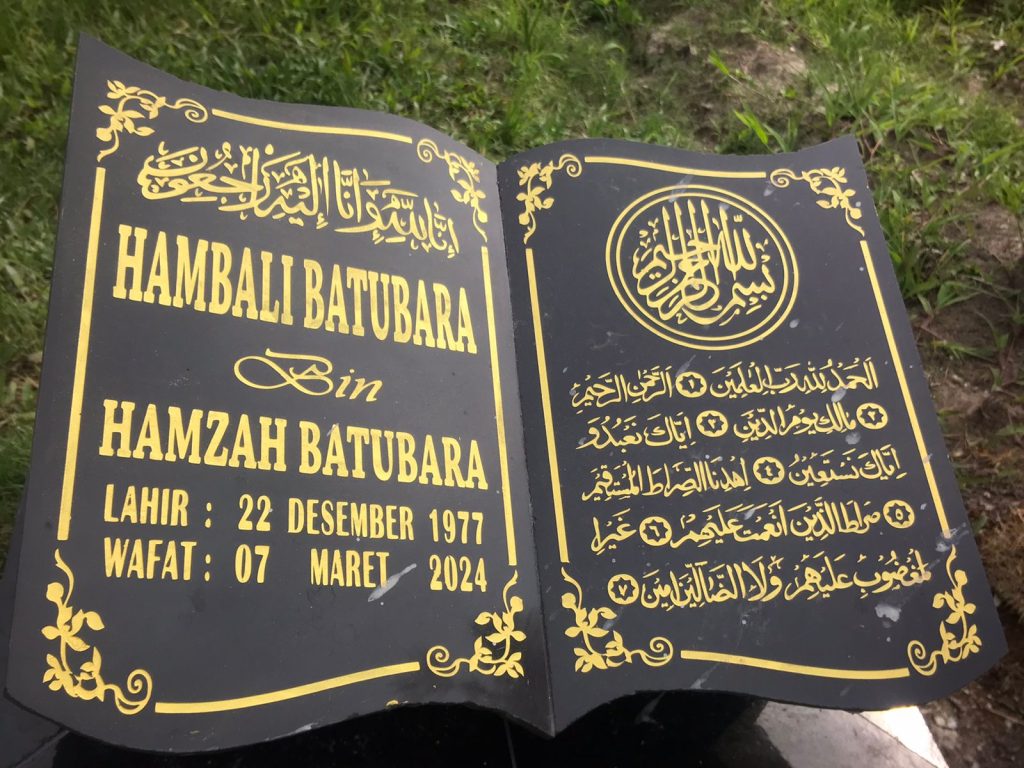 إنا لله وإنا إليه راجعون
HAMBALI BATUBARA
Bin
HAMZAH BATUBARA
LAHIR : 22 DESEMBER 1977
WAFAT : 07 MARET 2024
بسم الله الرحمن الرحيم
اَلْحَمْدُ لِلّٰهِ رَبِّ الْعٰلَمِيْنَ ١ اَلرَّحْمٰنِ الرَّحِيْمِ
٢ مٰالِكِ يَوْمِ الدِّيْنِ ٣ اِيَّاكَ نَعْبُدُ وَ
اِيَّاكَ نَسْتَعِيْنُ ٤ اِهْدِنَا الصِّرَاطَ الْمُسْتَقِيْمَ
٥ صِرَاطَ الَّذِيْنَ اَنْعَمْتَ عَلَيْهِمْ ٦ غَيْرِا
لْمَغْضُوْبِ عَلَيْهِمْ وَلَا الضَّآلِّيْنَ اٰمِيْنَ ٧